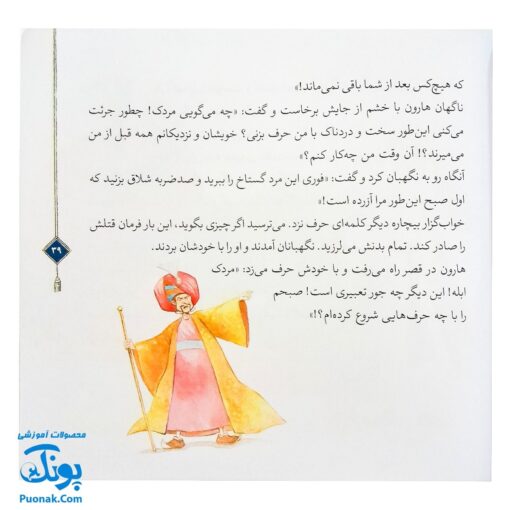 که هیچ‌کس بعد از شما باقی نمی‌ماند!»
ناگهان هارون با خشم از جایش برخاست و گفت: «چه می‌گویی مردک! چطور جرئت
می‌کنی این‌طور سخت و دردناک با من حرف بزنی؟ خویشان و نزدیکانم همه قبل از من
می‌میرند؟! آن وقت من چه‌کار کنم؟»
آنگاه رو به نگهبان کرد و گفت: «فوری این مرد گستاخ را ببرید و صدضربه شلاق بزنید که
اول صبح این‌طور مرا آزرده است!»
خواب‌گزار بیچاره دیگر کلمه‌ای حرف نزد. می‌ترسید اگر چیزی بگوید، این بار فرمان قتلش
را صادر کند. تمام بدنش می‌لرزید. نگهبانان آمدند و او را با خودشان بردند.
هارون در قصر راه می‌رفت و با خودش حرف می‌زد: «مردک
ابله! این دیگر چه جور تعبیری است! صبحم
را با چه حرف‌هایی شروع کرده‌ام؟!»
۳۹
محصولات آموزشی
پونک
Puonak.Com